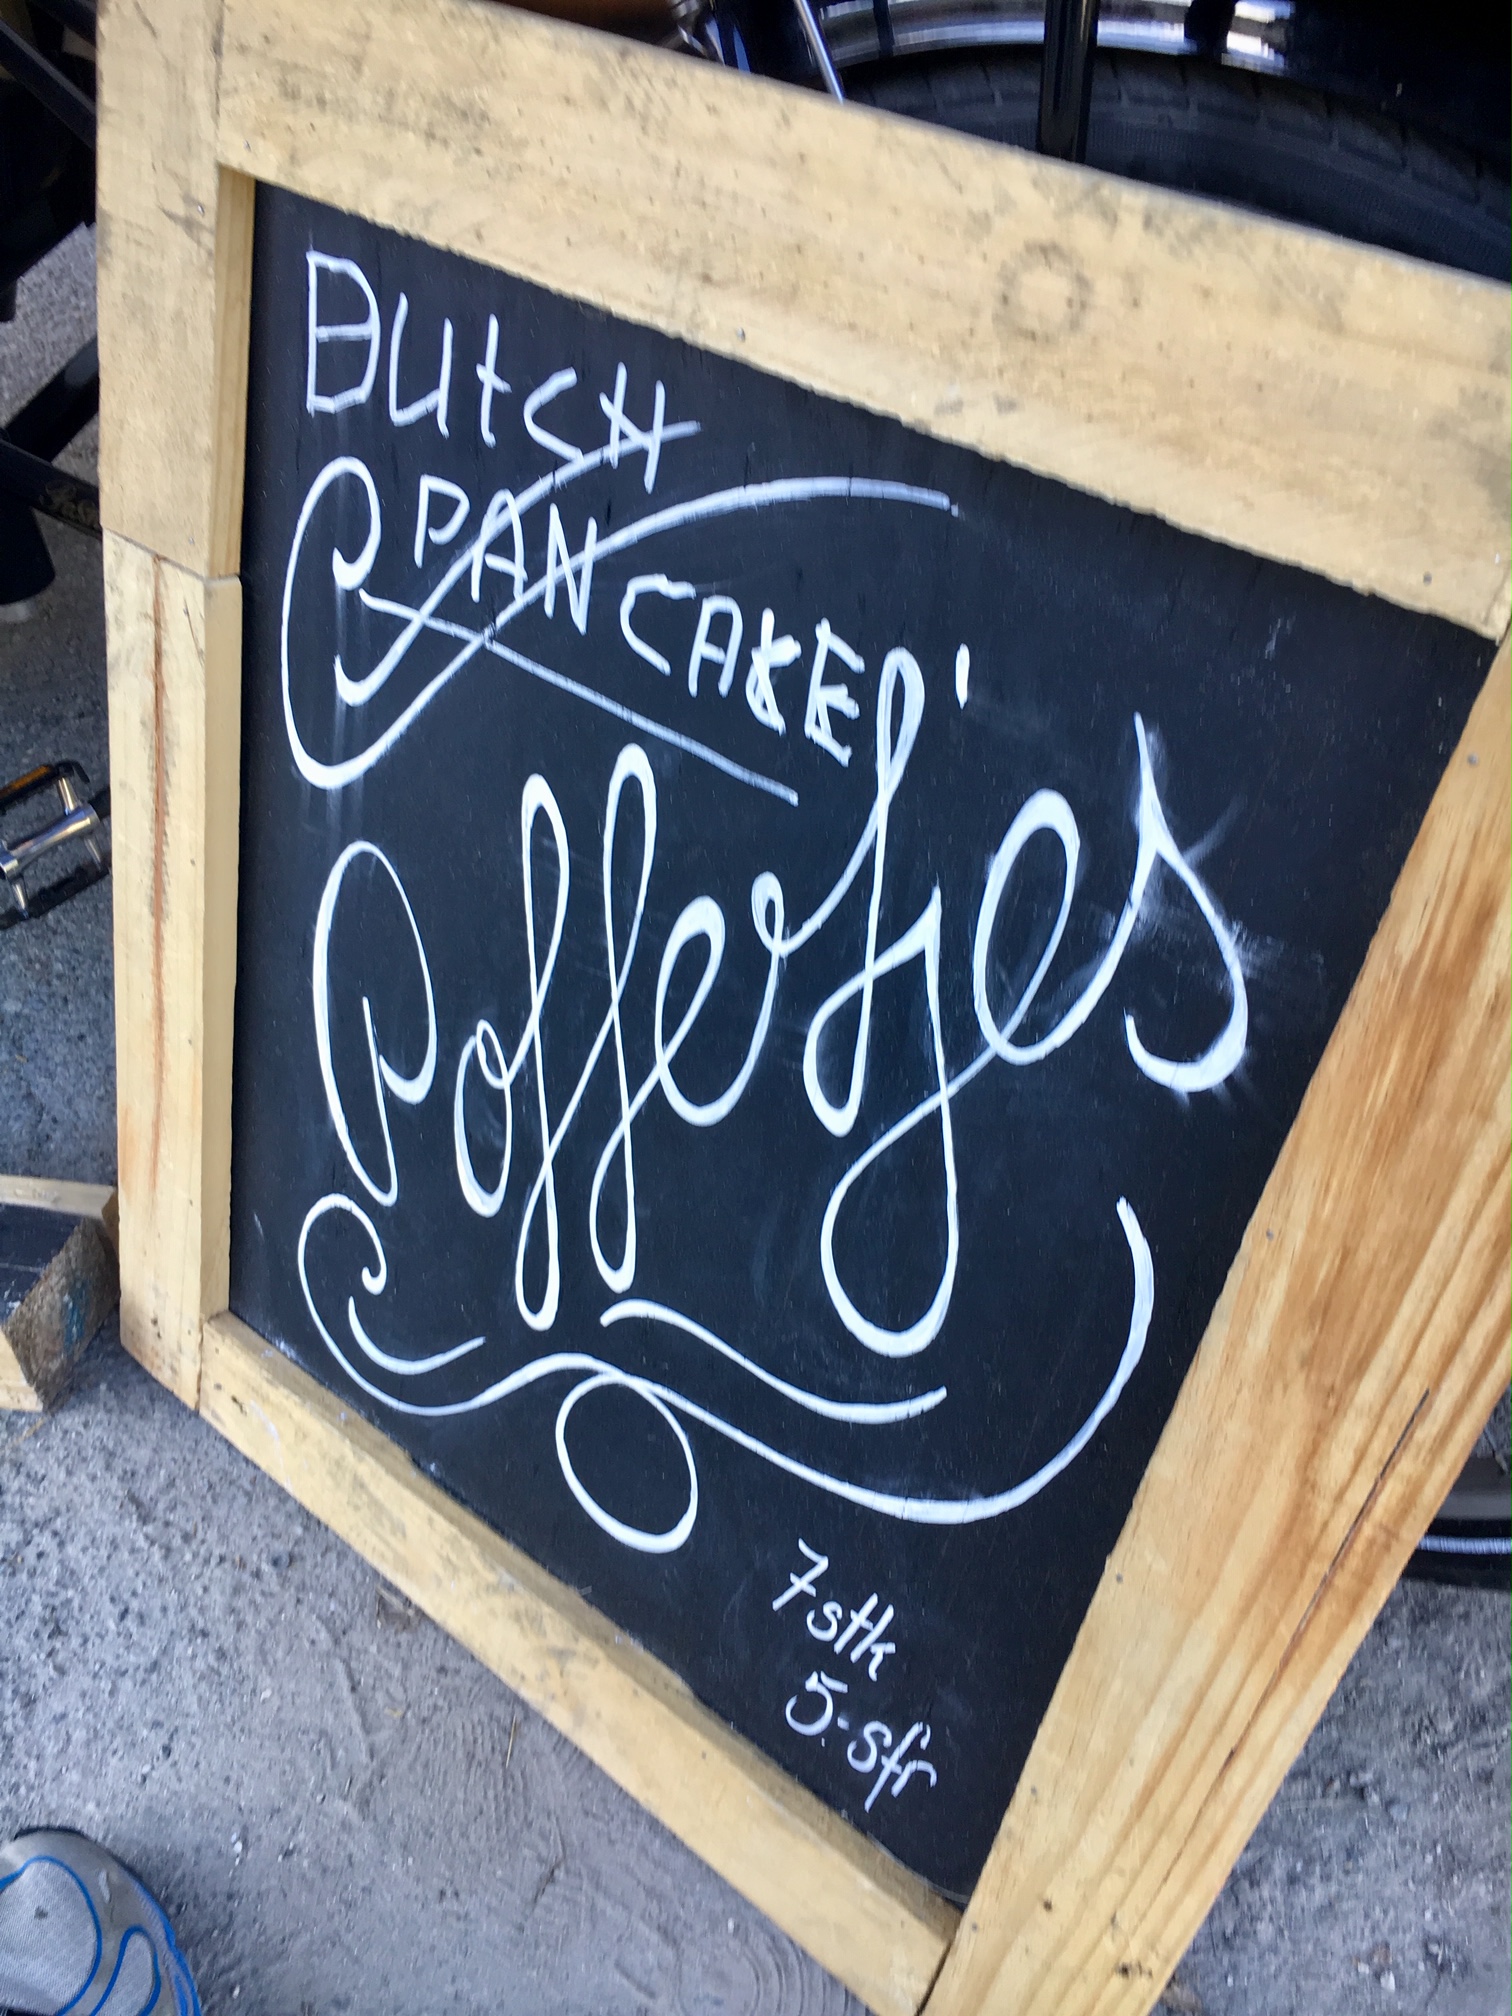 DUtCH
PANCAKE'
Poffertjes
7 stk
5.- sfr